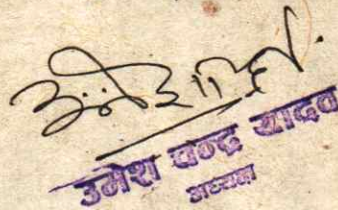 उमेश चन्द्र यादव
अध्यक्ष